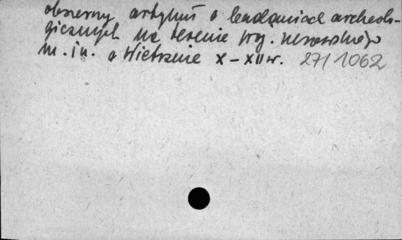 obszerny artykuł o badaniach archeolo-
gicznych na terenie woj. rzeszowskiego
m. in. o Wietrznie X-XII w. 27/1062